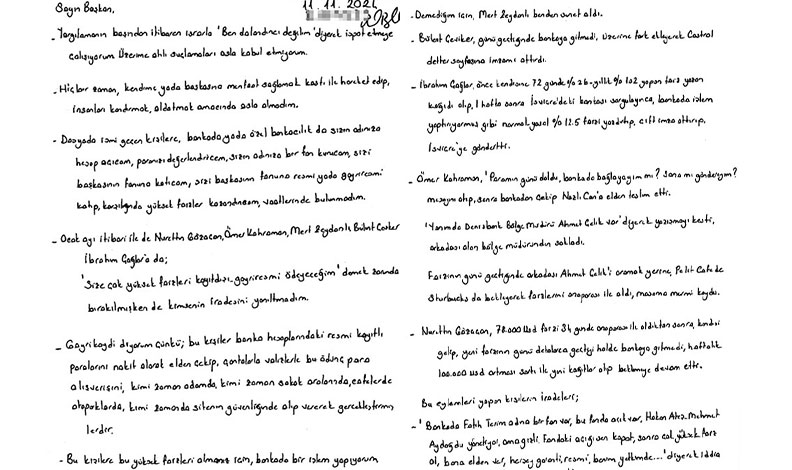 Sayın Başkan,
11.11.2024
- Yargılamanın başından itibaren ısrarla 'Ben dolandırıcı değilim' diyerek ispat etmeye
çalışıyorum. Üzerime atılı suçlamaları asla kabul etmiyorum.
- Hiçbir zaman, kendime yada başkasına menfaat sağlamak kastı ile hareket edip,
insanları kandırmak, aldatmak amacında asla olmadım.
- Dosyada ismi geçen kişilere, bankada yada özel bankacılık da sizin adınıza
hesap açıcam, paranızı değerlendiricem, sizin adınıza bir fon kurucam, sizi
başkasının fonuna katıcam, sizi başkasının fonuna resmi yada gayriresmi
katıp, karşılığında yüksek faizler kazandırıcam, vaatlerinde bulunmadım.
- Ocak ayı itibari ile de Nurettin Gözaçan, Ömer Kahraman, Mert Zeydanlı, Bülent Çeviker
İbrahim Çağlar'a da;
'Size çok yüksek faizleri kayıtdışı, gayriresmi ödeyeceğim' demek zorunda
bırakılmışken de kimsenin iradesini yanıltmadım.
- Gayrikaydi diyorum çünkü; bu kişiler banka hesaplarındaki resmi kayıtlı
paralarını nakit olarak elden çekip, çantalarla valizlerle bu ödünç para
alışverişini, kimi zaman odamda, kimi zaman sokak aralarında, cafelerde
otoparklarda, kimi zamanda sitenin güvenliğinde alıp vererek gerçekleştirmiş
lerdir.
- Bu kişilere bu yüksek faizleri almanız için, bankada bir işlem yapıyorum
- Demediğim için, Mert Zeydanlı benden senet aldı.
- Bülent Çeviker, günü geçtiğinde bankaya gitmedi, üzerine fark ekleyerek Castrol
defter sayfasına imzamı attırdı.
- İbrahim Çağlar, önce kendine 72 günde % 26 - yıllık % 102 yapan faiz yazan
kağıdı alıp, 1 hafta sonra İsviçre'deki bankası sorgulayınca, bankada işlem
yaptırıyormuş gibi normal yasal % 12.5 faizi yazdırıp, çift imza attırıp,
İsviçre'ye gönderttti.
- Ömer Kahraman, 'Paramın günü doldu, bankada bağlayayım mı? Sana mı göndereyim?
mesajını atıp, sonra bankadan çekip Nazlı Can'a elden teslim etti.
'Yanımda Denizbank Bölge Müdürü Ahmet Çelik var' diyerek yazışmayı kesti,
arkadaşı olan bölge müdüründen sakladı.
Faizinin günü geçtiğinde arkadaşı Ahmet Çelik'i aramak yerine, Polit Cafe de
Starbucks da bekleyerek faizlerini anaparası ile aldı, masama mermi koydu.
- Nurettin Gözaçan, 78.000 Usd faizi 34 günde anaparası ile aldıktan sonra, kendisi
gelip, yeni faizinin günü defalarca geçtiği halde bankaya gitmedi, haftalık
100.000 USD artması şartı ile yeni kağıtlar alıp beklmeye devam etti.
Bu eylemleri yapan kişilerin iradeleri;
- ' Bankada Fatih Terim adına bir fon var, bu fonda açık var, Hakan Ateş - Mehmet
Aydoğdu yönetiyor, ama gizli. Fondaki açığı sen kapat, sonra çok yüksek faiz
al, bana elden ver, herşey garanti, resmi, benim yetkimde...' diyerek iddia